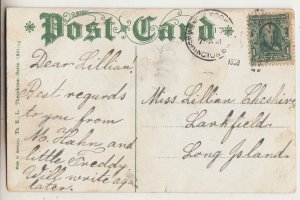 Post Card
Dear Lillian,
Best regards
to you from
M. Hahn and
little Freddy.
Will write again
later.
Miss Lillian Cheshire
Larkfield,
Long Island.
1908